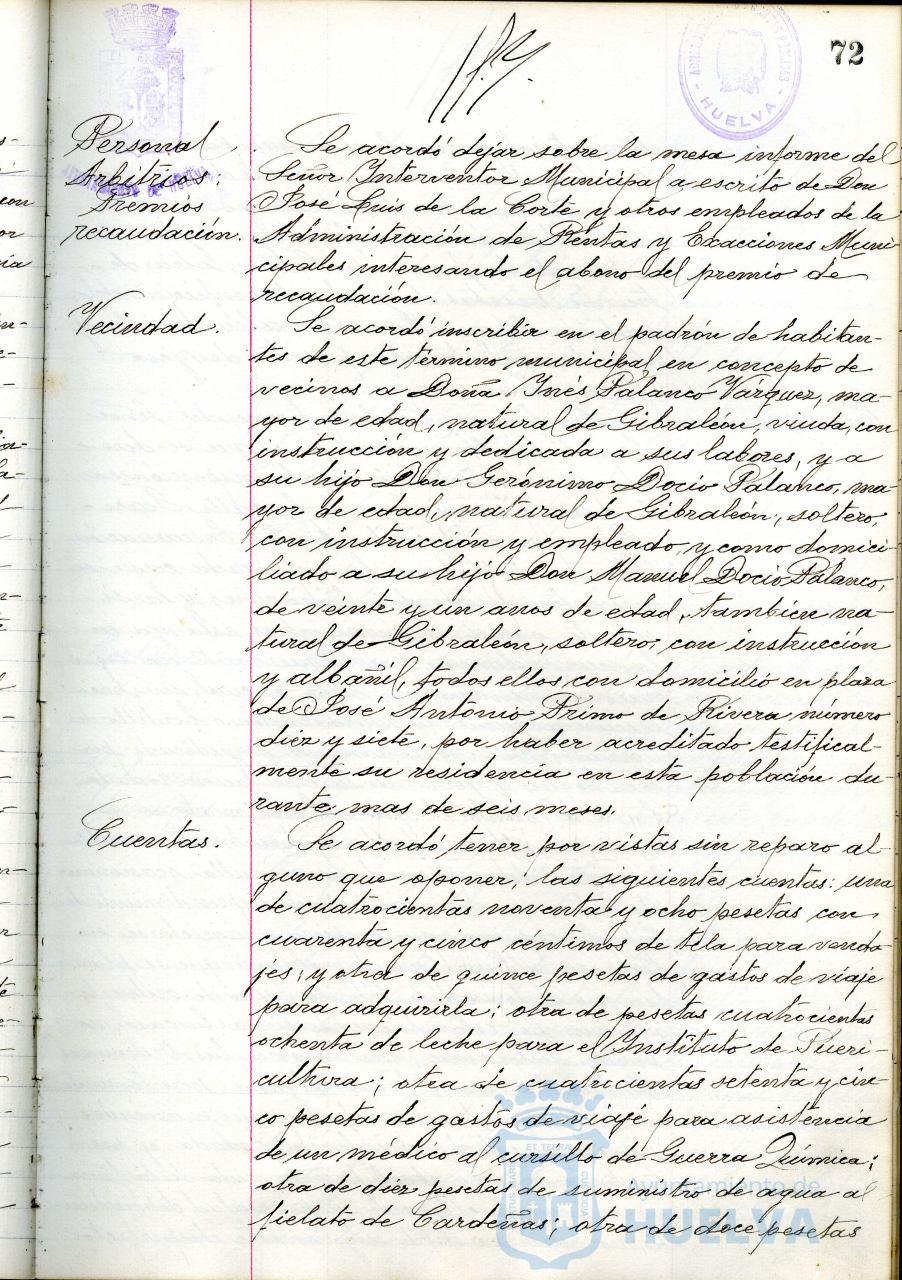 72
HUELVA
Personal
Arbitrios:
Premios
recaudación.
Se acordó dejar sobre la mesa informe del
Señor Interventor Municipal a escrito de Don
José Luis de la Corte y otros empleados de la
Administración de Rentas y Exacciones Muni-
cipales interesando el abono del premio de
recaudación.
Vecindad.
Se acordó inscribir en el padrón de habitan-
tes de este término municipal en concepto de
vecinos a Doña Inés Palanco Vázquez, ma-
yor de edad, natural de Gibraleón, viuda, con
instrucción y dedicada a sus labores, y a
su hijo Don Gerónimo Docio Palanco, ma-
yor de edad, natural de Gibraleón, soltero,
con instrucción y empleado, y como domici-
liado a su hijo Don Manuel Docio Palanco,
de veinte y un anos de edad, tambien na-
tural de Gibraleón, soltero, con instrucción
y albañil, todos ellos con domicilio en plaza
de José Antonio Primo de Rivera número
diez y siete, por haber acreditado testifical-
mente su residencia en esta población du-
rante mas de seis meses.
Cuentas.
Se acordó tener por vistas sin reparo al-
guno que oponer, las siguientes cuentas: una
de cuatrocientas noventa y ocho pesetas con
cuarenta y cinco céntimos de tela para venda-
jes; y otra de quince pesetas de gastos de viaje
para adquirirla; otra de pesetas cuatrocientas
ochenta de leche para el Instituto de Pueri-
cultura; otra de cuatrocientas setenta y cin-
co pesetas de gastos de viaje para asistencia
de un médico al cursillo de Guerra Química;
otra de diez pesetas de suministro de agua al
fielato de Cardeñas; otra de doce pesetas
Ayuntamiento de
HUELVA